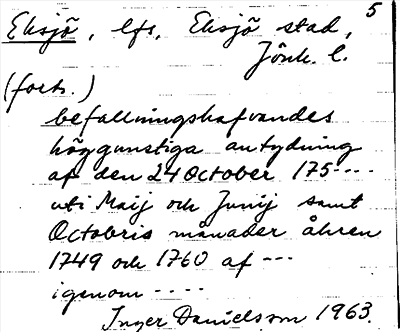 5
Eksjö, lfs, Eksjö stad,
Jönk. l.
(forts.)
befallningshafvandes
höggunstiga antydning
af den 24 October 175----
uti Maij och Junij samt
Octobris månader åhren
1749 och 1760 af ---
igenom ----
Inger Danielsson 1963.